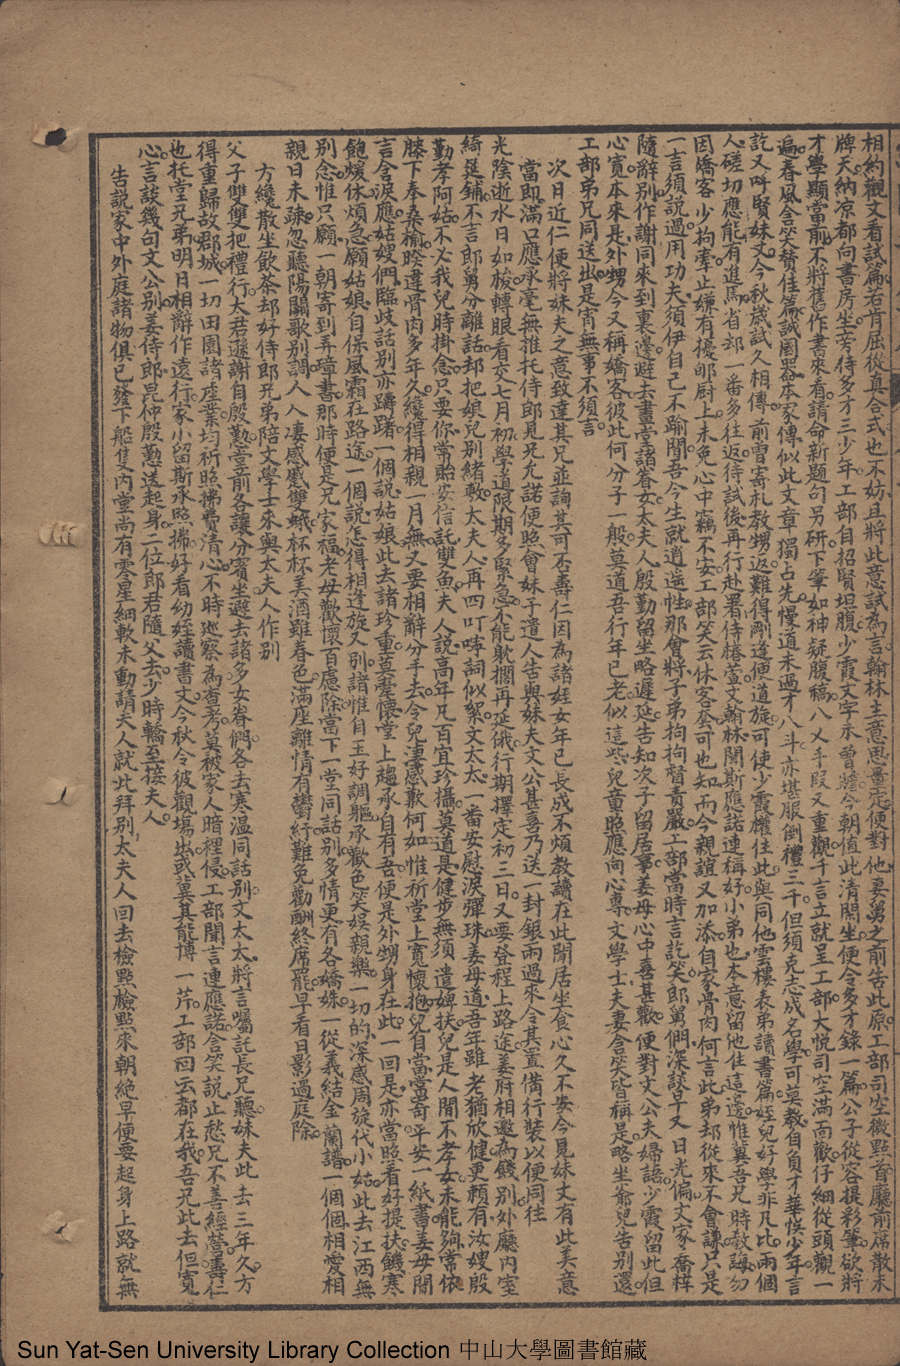 相約觀文看試篇若肯屈從真合式也不妨且將此意試為言翰林主意思量定便對他妻舅之前告此原工部司空微點首廳前席散未
牌天納凉都向書房坐芳侍多才三少年工部自招賢坦腹少霞文字未曾瞻今朝值此清閑坐便令多才錄一篇公子從容提彩筆欲將
才學顯當前不將舊作書來看請命新題句另研下筆如神疑腹稿八乂手段又重觀千言立就呈工部大悅司空滿面歡仔細從頭觀一
遍春風含笑贊佳篇誠閬器本家傳似此文章獨占先慢道未過才八斗亦堪服倒禮三千但須克志成名學可莫教自負才華悞少年言
訖又呼賢妹丈今秋歲試久相傳前曾寄札教甥返難得剛逢便道旋可使少霞權住此與同他雲樓表弟讀書篇姪兒好學非凡比兩個
人磋切應能有進焉省却一番多往返待試後再行赴署侍椿萱文翰林聞斯應諾連稱好小弟也本意留他住這邊惟冀吾兄時教誨勿
因嬌客少拘牽止嫌有擾郇厨上未免心中竊不安工部笑云休客套可也知而今親誼又加添自家骨肉何言此弟却從來不會謙只是
一言須說過用功夫須伊自己不踰閑吾今生就逍遙性那會將子弟拘拘督責嚴工部當時言訖笑郎舅們深談早又日光偏文家喬梓
隨辭別作謝同來到裏邊避去畫堂諸眷女太夫人殷勤留坐略遲延告知次子留居事姜母心中喜甚歡便對文公夫婦語少霞留此但
心寬本來是外甥今又稱嬌客彼此何分子一般莫道吾行年已老似這些兒童照應向心專文學士夫妻含笑皆稱是略坐爺兒告別還
工部弟兄同送出是宵無事不須言
次日近仁便將妹夫之意致達其兄並詢其可否壽仁因為諸姪女年已長成不煩教讀在此閒居坐食心久不安今見妹丈有此美意
當即滿口應承毫無推托侍郎見兄允諾便照會妹子遣人告與妹夫文公甚喜乃送一封銀兩過來令其置備行裝以便同往
光陰逝水日如梭轉眼看交七月初學道限期多緊急不能躭擱再延俄行期擇定初三日又要登程上路途姜府相邀為餞別外廳內室
綺筵鋪不言郎舅分離話却把娘兒別緒敷太夫人再四叮嚀詞似絮文太太一畨安慰淚彈珠姜母道吾年雖老猶欣健更賴有汝嫂殷
勤孝阿姑不必我兒時掛念只要你常貽安信託雙魚夫人說高年凡百宜珍攝莫道是健步無須遣婢扶兒是人間不孝女未能夠常依
膝下奉桑榆暌違骨肉多年久纔得相親一月無又要相辭分手去令兒淒感歎何如惟祈堂上寬懷抱兒自當當寄平安一紙書姜母聞
言含淚應姑嫂們臨歧話別亦躊躇一個說姑娘此去諸珍重莫縈懷堂上趨承自有吾便是外甥身在此一回是亦當照看好提扶饑寒
飽煖休煩急願姑娘自保風霜在路途一個說怎得相逢旋又別諸惟自玉好調軀承歡色笑娛親樂一切的深感周旋代小姑此去江西無
別念惟只願一朝寄到弄璋書那時便是兄家福老母歡懷百慮除當下一堂同話別多情更有各嬌姝一從義結金蘭譜一個個相愛相
親日未疎忽聽陽關歌別調人人凄感感雙蛾杯杯美酒難春色滿座離情有鬱紆難免勸酬終席罷早看日影過庭除
方纔散坐飲茶却好侍郎兄弟陪文學士來與太夫人作別
父子雙雙把禮行太君遜謝自殷勤堂前各讓分賓坐避去諸多女眷們各去寒溫同話別文太太將言囑託長兄聽妹夫此去三年久方
得重歸故郡城一切田園諸產業均祈照拂費清心不時巡察為查考莫被家人暗裡侵工部聞言連應諾含笑說止愁兄不善經營壽仁
也托堂兄弟明日相辭作遠行家小留斯承照拂好看幼姪讀書文今秋令彼觀場出或冀其能博一芹工部回云都在我吾兄此去但寬
心言談幾句文公別姜侍郎昆仲殷懃送起身二位郎君隨父去少時輪至接夫人
告說家中外庭諸物俱已發下船隻內堂尚有零星細軟未動請夫人就此拜別太夫人回去檢點檢點來朝絕早便要起身上路就無
Sun Yat-Sen University Library Collection 中山大學圖書館藏